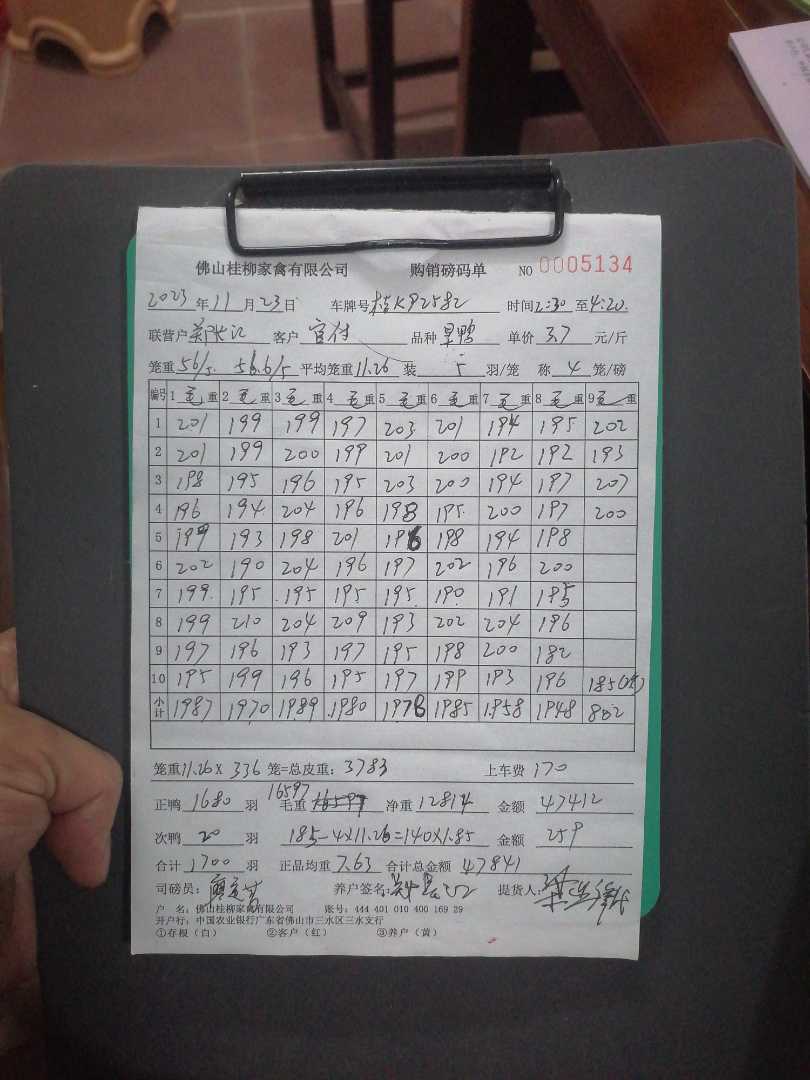 佛山桂柳家禽有限公司 购销磅码单 NO 0005134
2023年11月23日 车牌号桂K92582 时间2:30至4:20
联营户 客户 官付 品种 旱鸭 单价 3.7 元/斤
笼重56/5 56.6/5 平均笼重11.26 装 5 羽/笼 称 4 笼/磅
编号 1毛重 2毛重 3毛重 4毛重 5毛重 6毛重 7毛重 8毛重 9毛重
1 201 199 199 197 203 201 194 195 202
2 201 199 200 199 201 200 192 192 193
3 198 195 196 195 203 200 194 197 207
4 196 194 204 196 198 195 200 197 200
5 199 193 198 201 196 198 194 198
6 202 190 204 196 197 202 196 200
7 199 195 195 195 195 190 191 195
8 199 210 204 209 193 202 204 196
9 197 196 193 197 195 198 200 182
10 195 199 196 195 197 199 193 196 185(次)
小计 1987 1970 1989 1980 1978 1985 1958 1948 802
笼重11.26X 336 笼=总皮重: 3783 上车费 170
正鸭 1680 羽 毛重 16597 净重 12814 金额 47412
次鸭 20 羽 185-4X11.26=140X1.85 金额 259
合计 1700 羽 正品均重 7.63 合计总金额 47841
司磅员: 养户签名: 提货人:
户 名: 佛山桂柳家禽有限公司 账号: 444 401 010 400 169 29
开户行: 中国农业银行广东省佛山市三水区三水支行
①存根(白) ②客户(红) ③养户(黄)